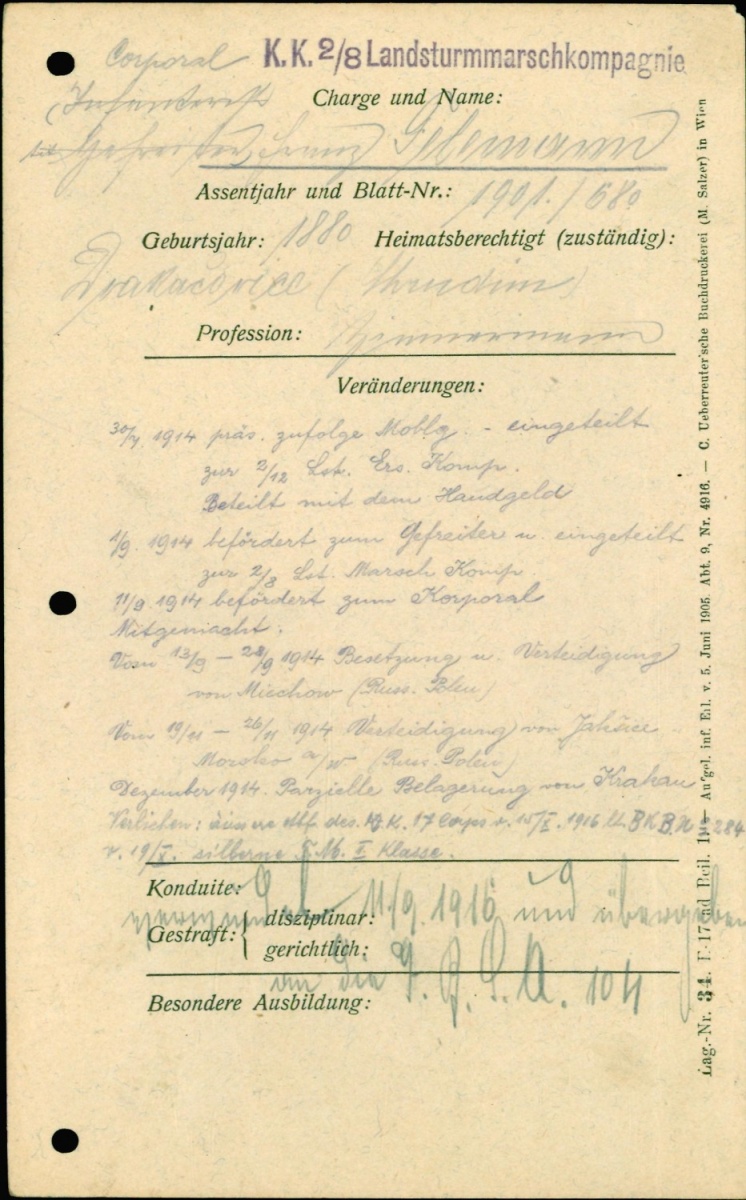 Corporal K.K. 2/8 Landsturmmarschkompagnie
Charge und Name:
Infanterist
tit. Gefreiter Franz
Assentjahr und Blatt-Nr.: 1901./680
Geburtsjahr: 1880 Heimatsberechtigt (zuständig):
(Chrudim)
Profession: Zimmermann
Veränderungen:
30/7. 1914 präs. zufolge Moblg. - eingeteilt
zur 2/12 Lst. Ers. Komp.
Beteilt mit dem Handgeld
1/9. 1914 befördert zum Gefreiter u. eingeteilt
zur 2/8 Lst. Marsch Komp.
11/9. 1914 befördert zum Korporal
Mitgemacht:
Vom 13/9 – 28/9 1914 Besetzung u. Verteidigung
von Miechow (Russ. Polen)
Vom 19/11 – 26/11 1914 Verteidigung von
(Russ. Polen)
Dezember 1914. Parzielle Belagerung von Krakau
Verliehen: des K. 17 Corps v. 15/X. 1916 lt. B K B. N 284
v. 19/X. silberne T. M. II Klasse.
Konduite:
11/9. 1916 und übergeben
Gestraft: { disziplinar:
gerichtlich:
an die F. J. S. A. 104
Besondere Ausbildung:
Lag.-Nr. 34. F-17 und Beil. — Aufgel. inf. Erl. v. 5. Juni 1905. Abt. 9, Nr. 4916. — C. Ueberreuter'sche Buchdruckerei (M. Salzer) in Wien